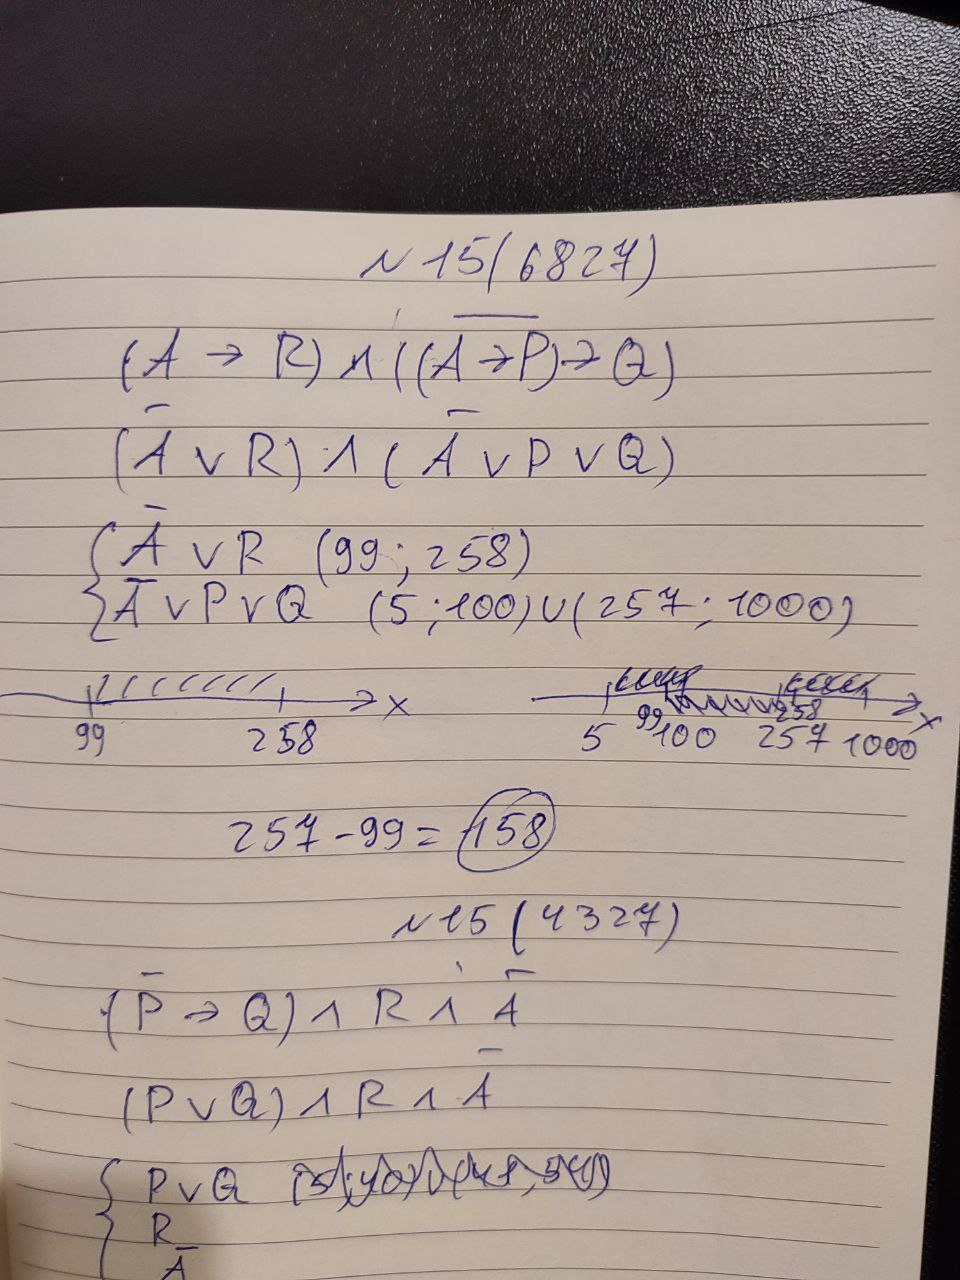 N 15(6827)
(A → R) ∧ ((A̅ ̅→̅ ̅P̅) → Q)
(A̅ ∨ R) ∧ (A̅ ∨ P ∨ Q)
{ A̅ ∨ R (99; 258)
A̅ ∨ P ∨ Q (5; 100)∪(257; 1000)
99 258 x 5 99 100 257 258 1000 x
257 - 99 = 158
N 15 (4327)
(P̅ → Q) ∧ R ∧ A̅
(P ∨ Q) ∧ R ∧ A̅
{ P ∨ Q
R
A̅